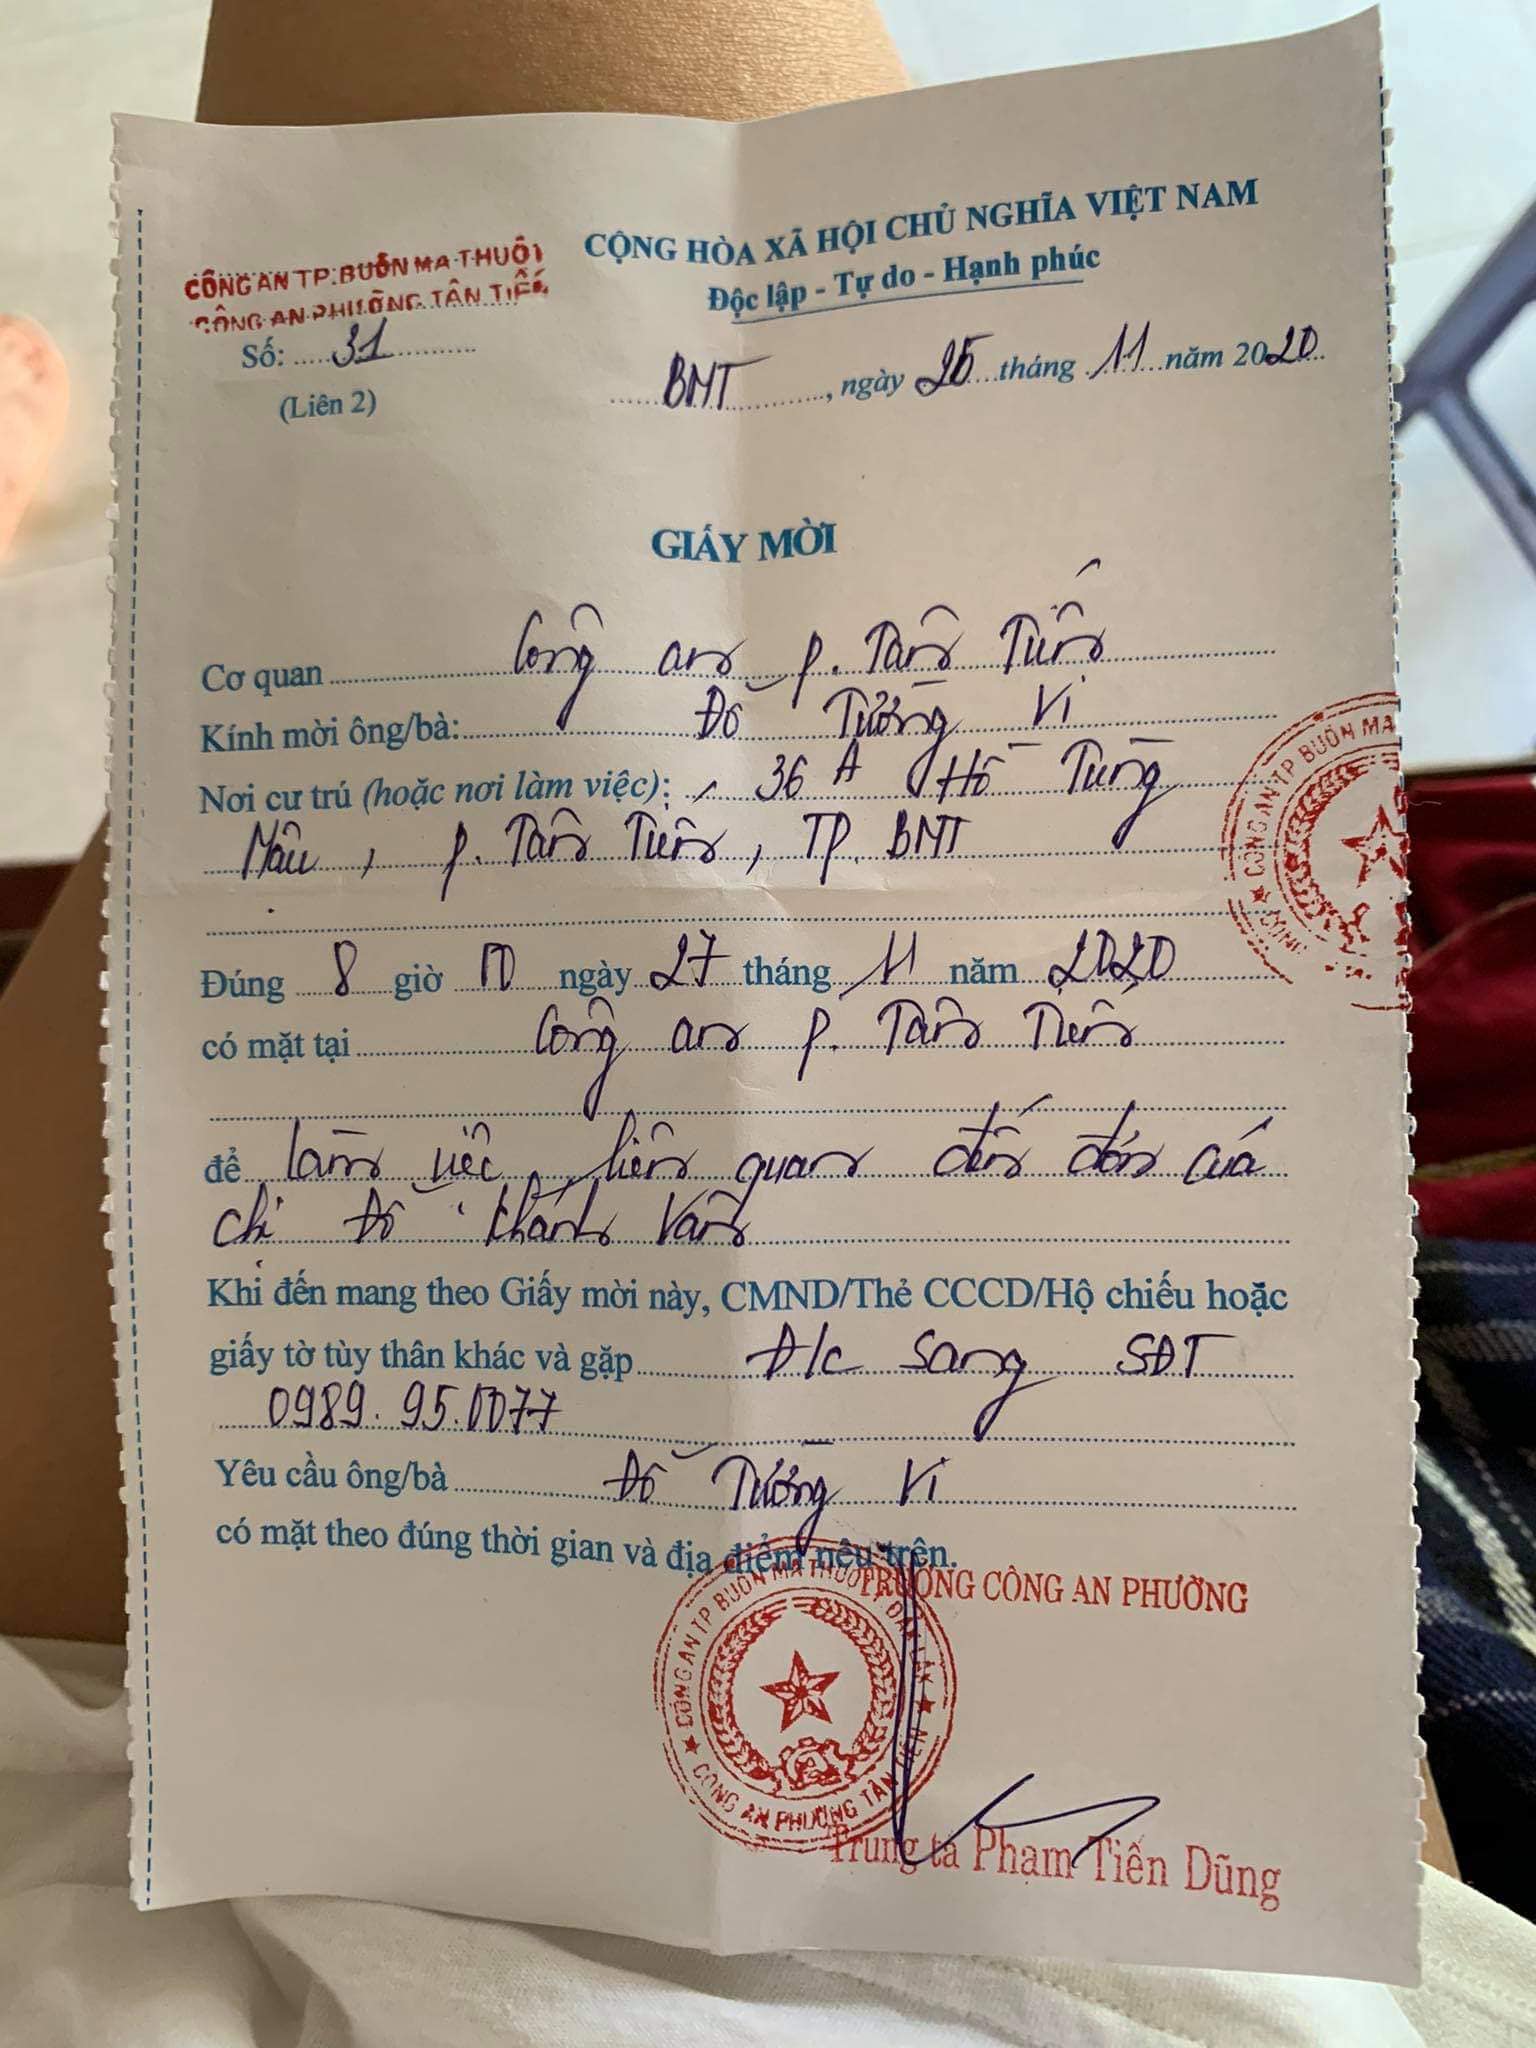 CÔNG AN TP.BUÔN MA THUỘT
CÔNG AN PHƯỜNG TÂN TIẾN
Số: 31
(Liên 2)
CỘNG HÒA XÃ HỘI CHỦ NGHĨA VIỆT NAM
Độc lập - Tự do - Hạnh phúc
BMT, ngày 25 tháng 11 năm 2020
GIẤY MỜI
Cơ quan Công an p. Tân Tiến
Kính mời ông/bà: Đỗ Tường Vi
Nơi cư trú (hoặc nơi làm việc): 36A Hồ Tùng
Mậu, p. Tân Tiến, TP. BMT
Đúng 8 giờ 00 ngày 27 tháng 11 năm 2020
có mặt tại Công an p. Tân Tiến
để làm việc liên quan đến đơn của
chị Đỗ Khánh Vân
Khi đến mang theo Giấy mời này, CMND/Thẻ CCCD/Hộ chiếu hoặc
giấy tờ tùy thân khác và gặp Đ/c Sang SĐT
0989.95.0077
Yêu cầu ông/bà Đỗ Tường Vi
có mặt theo đúng thời gian và địa điểm nêu trên.
TRƯỞNG CÔNG AN PHƯỜNG
CÔNG AN TP BUÔN MA THUỘT, ĐẮK LẮK
CÔNG AN PHƯỜNG TÂN TIẾN
Trung tá Phạm Tiến Dũng
CÔNG AN TP BUÔN MA